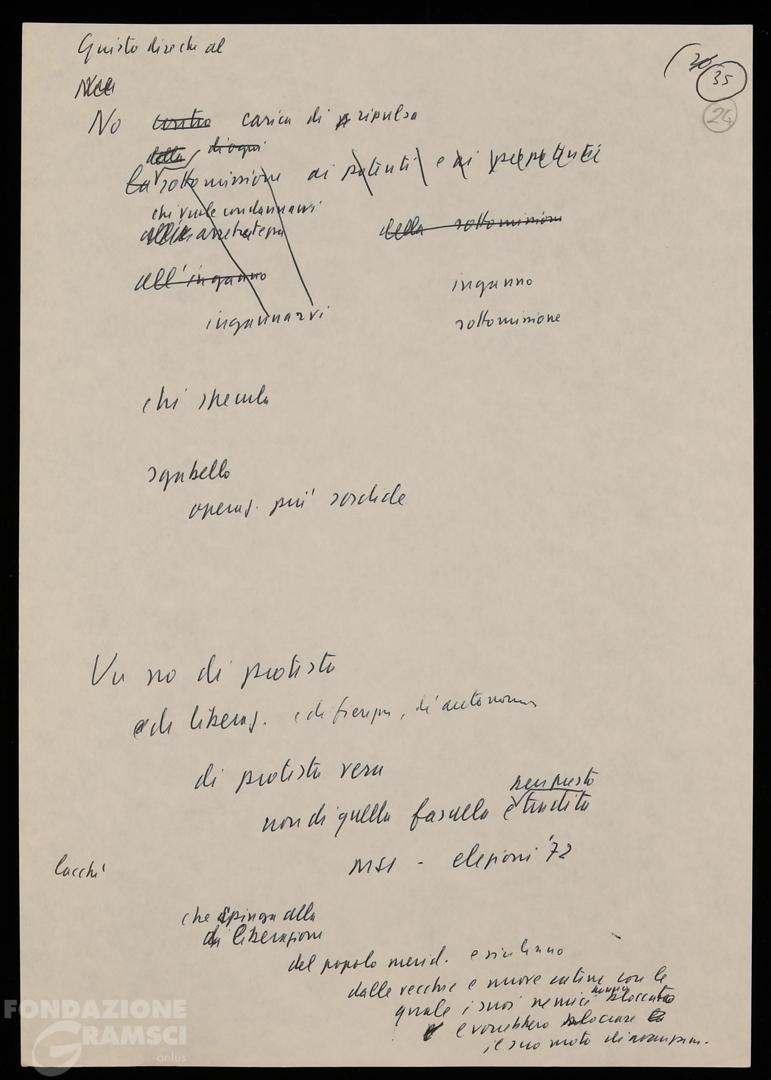 Giusto dire che al
No contro carica di ripulsa
della di ogni
la sottomissione ai potenti e ai prepotenti
chi vuole condannarvi
all'arretratezza della sottomissione
all'inganno inganno
ingannarvi sottomissione
chi specula
sgabello
operaz. più sordide
35
24
Un no di protesta
e di liberaz. e di fierezza, di autonomia
di protesta vera
non di quella fasulla e tradita
MSI - elezioni '72
lacchè
che spinga alla
liberazione
del popolo merid. e siciliano
dalle vecchie e nuove catene con le
quale i suoi nemici hanno bloccato
e vorrebbero bloccare
il suo moto di avanzam.
FONDAZIONE
GRAMSCI
onlus